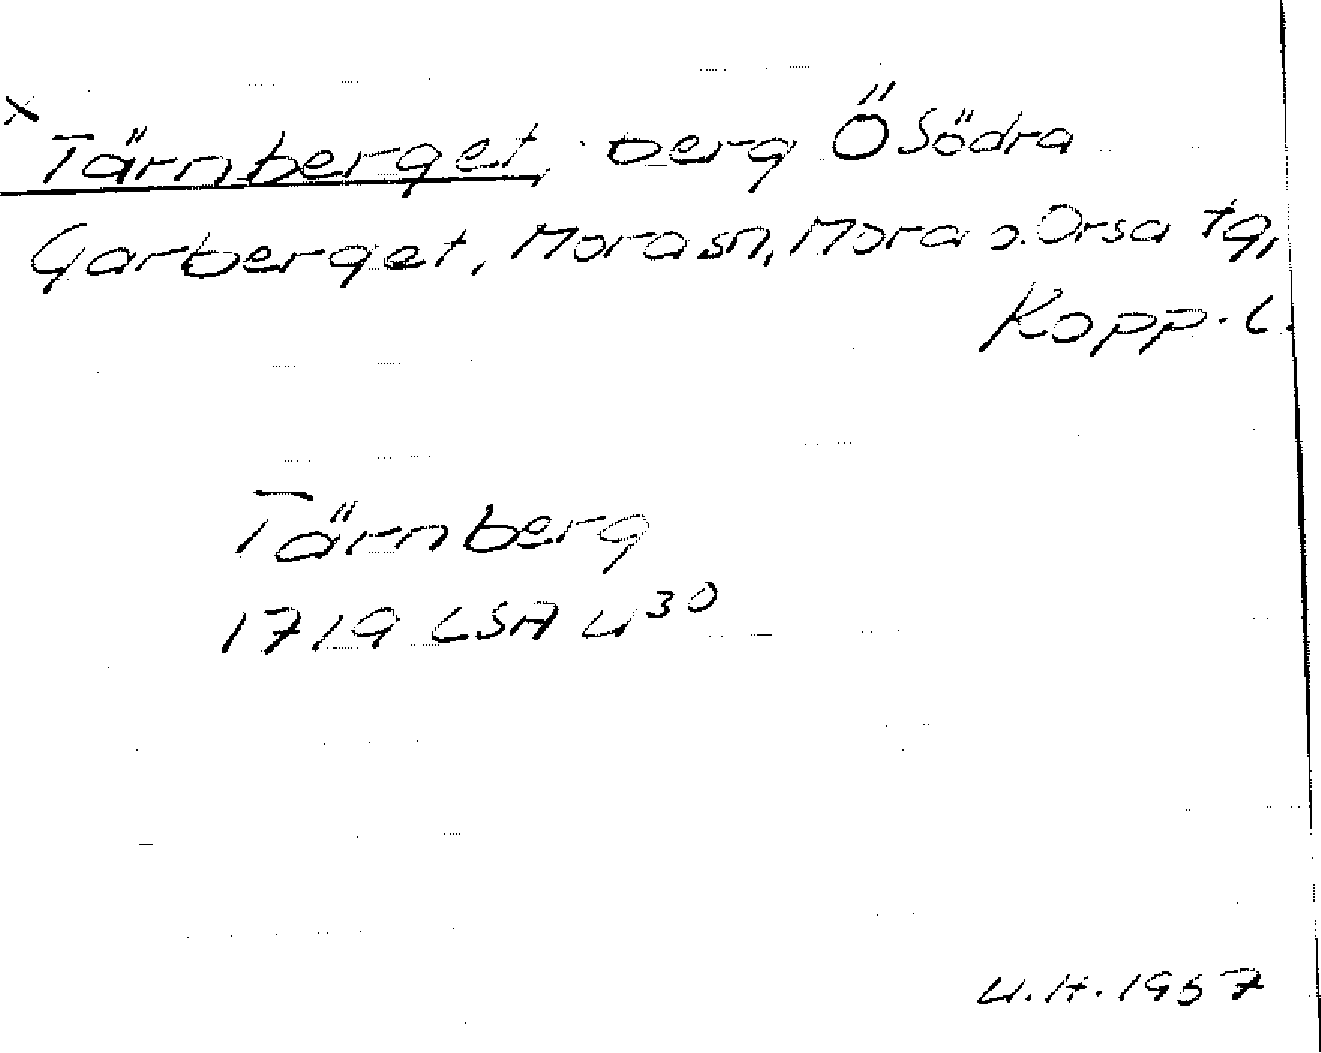 x
Tärnberget, berg Ö Södra
Garberget, Mora sn, Mora o. Orsa tg,
Kopp. l.
Tärnberg
1719 LSA U³⁰
U.H. 1957